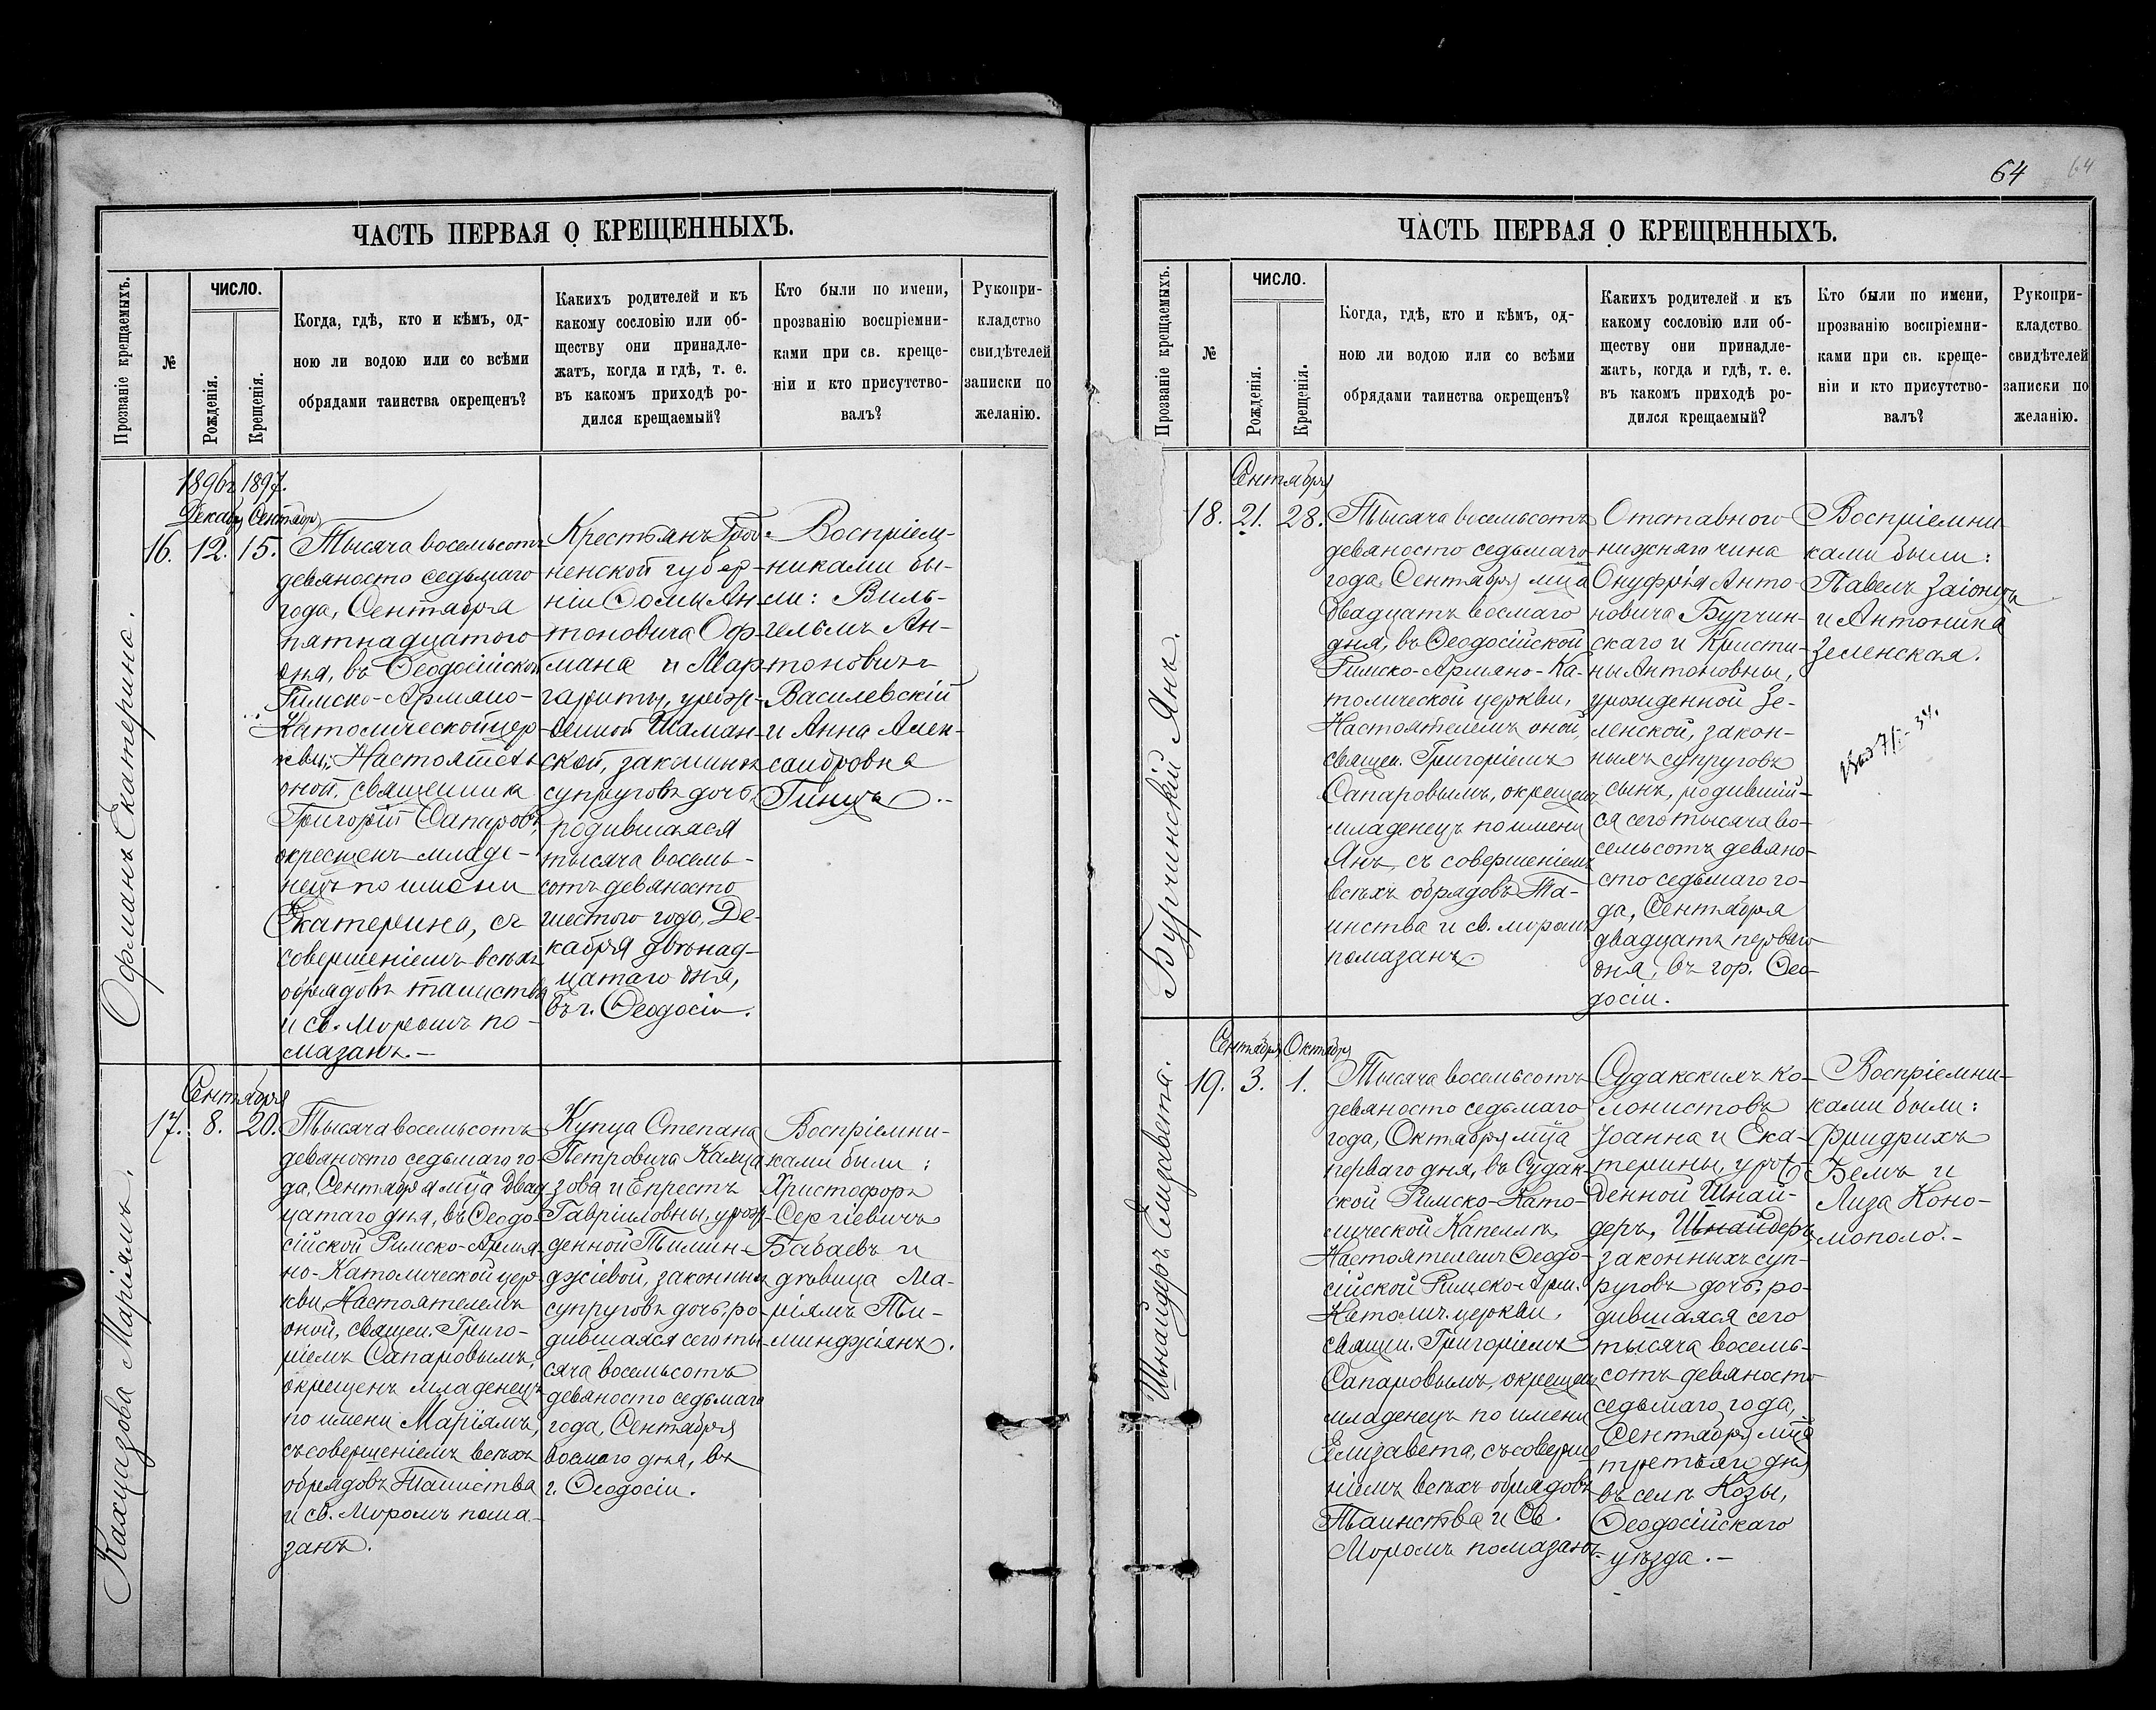 ЧАСТЬ ПЕРВАЯ О КРЕЩЕННЫХЪ.
Прозваніе крещаемыхъ.
№
ЧИСЛО.
Рожденія.
Крещенія.
Когда, гдѣ, кто и кѣмъ, од-
ною ли водою или со всѣми
обрядами таинства окрещенъ?
Какихъ родителей и къ
какому сословію или об-
ществу они принадле-
жатъ, когда и гдѣ, т. е.
въ какомъ приходѣ ро-
дился крещаемый?
Кто были по имени,
прозванію воспріемни-
ками при св. креще-
ніи и кто присутство-
валъ?
Рукопри-
кладство
свидѣтелей
записки по
желанію.
Офманъ Екатерина.
1896 г. 1897.
Декабр. Сентября
16. 12. 15.
Тысяча восемьсотъ
девяносто седьмаго
года, Сентября
пятнадцатого
дня, въ Ѳеодосійской
Римско-Армяно-
Католической цер-
кви, Настоятель
оной, священника
Григорій Сапаровъ,
окрещенъ младе-
нецъ по имени
Екатерина, съ
совершеніемъ всѣхъ
обрядовъ таинства
и св. Мѵромъ по-
мазанъ.—
Крестьянъ Грод-
ненской губер-
ніи Ѳомы Ан-
тоновича Оф-
мана и Мар-
гариты, урож-
денной Шаман-
ской, законныхъ
супруговъ дочь,
родившаяся
тысяча восемь-
сотъ девяносто
шестого года, Де-
кабря двѣнад-
цатаго дня,
въ г. Ѳеодосіи.
Воспріем-
никами бы-
ли: Виль-
гельмъ Ан-
тоновичъ
Василевскій
и Анна Алек-
сандровна
Гинцъ.—
Кахцазова Маріямъ.
Сентября
17. 8. 20.
Тысяча восемьсотъ
девяносто седьмаго го-
да, Сентября мца двад
цатаго дня, въ Ѳеодо-
сійской Римско-Армя-
но-Католической цер-
кви, Настоятелемъ
оной, священ. Григо-
ріемъ Сапаровымъ,
окрещенъ младенецъ
по имени Маріямъ,
съ совершеніемъ всѣхъ
обрядовъ Таинства
и св. Мѵромъ пома-
занъ.
Купца Степана
Петровича Кахца
зова и Епрестъ
Гавріиловны, урож-
денной Тимин-
джіевой, законныхъ
супруговъ дочь, ро-
дившаяся сего ты-
сяча восемьсотъ
девяносто седьмаго
года, Сентября
восмаго дня, въ
г. Ѳеодосіи.
Воспріемни-
ками были:
Христофоръ
Сергіевичъ
Бабаевъ и
дѣвица Ма-
ріямъ Ти-
минджіянъ.
64
64
ЧАСТЬ ПЕРВАЯ О КРЕЩЕННЫХЪ.
Прозваніе крещаемыхъ.
№
ЧИСЛО.
Рожденія.
Крещенія.
Когда, гдѣ, кто и кѣмъ, од-
ною ли водою или со всѣми
обрядами таинства окрещенъ?
Какихъ родителей и къ
какому сословію или об-
ществу они принадле-
жатъ, когда и гдѣ, т. е.
въ какомъ приходѣ ро-
дился крещаемый?
Кто были по имени,
прозванію воспріемни-
ками при св. креще-
ніи и кто присутство-
валъ?
Рукопри-
кладство
свидѣтелей
записки по
желанію.
Бурчинскій Янъ.
Сентября
18. 21. 28.
Тысяча восемьсотъ
девяносто седьмаго
года, Сентября мца
двадцать восмаго
дня, въ Ѳеодосійской
Римско-Армяно-Ка-
толической церкви,
Настоятелемъ оной,
священ. Григоріемъ
Сапаровымъ, окрещенъ
младенецъ по имени
Янъ, съ совершеніемъ
всѣхъ обрядовъ Та-
инства и св. мѵромъ
помазанъ.
Отставного
нижняго чина
Онуфрія Анто-
новича Бурчин-
скаго и Кристи-
ны Антоновны,
урожденной Зе-
ленской, закон-
ныхъ супруговъ
сынъ, родившій-
ся сего тысяча во-
семьсотъ девяно-
сто седьмаго го-
да, Сентября
двадцать перваго
дня, въ гор. Ѳео-
досіи.
Воспріемни-
ками были:
Павелъ Заіонцъ
и Антонина
Зеленская.
Шнайдеръ Елизавета.
Сентября Октября
19. 3. 1.
Тысяча восемьсотъ
девяносто седьмаго
года, Октября мца
перваго дня, въ Судак-
ской Римско-Като-
лической Капеллѣ,
Настоятелемъ Ѳеодо-
сійской Римско-Арм.
Католич. церкви,
священ. Григоріемъ
Сапаровымъ, окрещенъ
младенецъ по имени
Елизавета, съ соверше
ніемъ всѣхъ обрядовъ
Таинства и Св.
Мѵромъ помазанъ.
Судакскихъ ко-
лонистовъ
Іоанна и Ека-
терины, урож-
денной Шнай-
деръ, Шнайдеръ,
законныхъ суп-
руговъ дочь, ро-
дившаяся сего
тысяча восемь-
сотъ девяносто
седьмаго года,
Сентября мца
третьяго дня
въ селѣ Козы,
Ѳеодосійскаго
уѣзда.—
Воспріемни-
ками были:
Фридрихъ
Бемъ и
Лиза Коно-
мополо.—